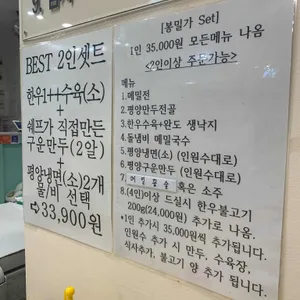 BEST 2인셋트
한우1++수육(소)
+
쉐프가 직접만든
구운만두(2알)
+
평양냉면(소)2개
물/비 선택
⇨33,900원
[봉밀가 Set]
1인 35,000원 모든메뉴 나옴
<2인이상 주문가능>
메뉴
1.메밀전
2.평양만두전골
3.한우수육+완도 생낙지
4.들냉비 메밀국수
5.평양냉면(소) (인원수대로)
6.평양구운만두 (인원수대로)
7. 혹은 소주
8.(4인)이상 드실시 한우불고기
200g(24,000원) 추가로 나옴.
*1인 추가시 35,000원씩 추가됩니다.
인원수 추가 시 만두, 수육장,
식사추가, 불고기 양 추가 됩니다.